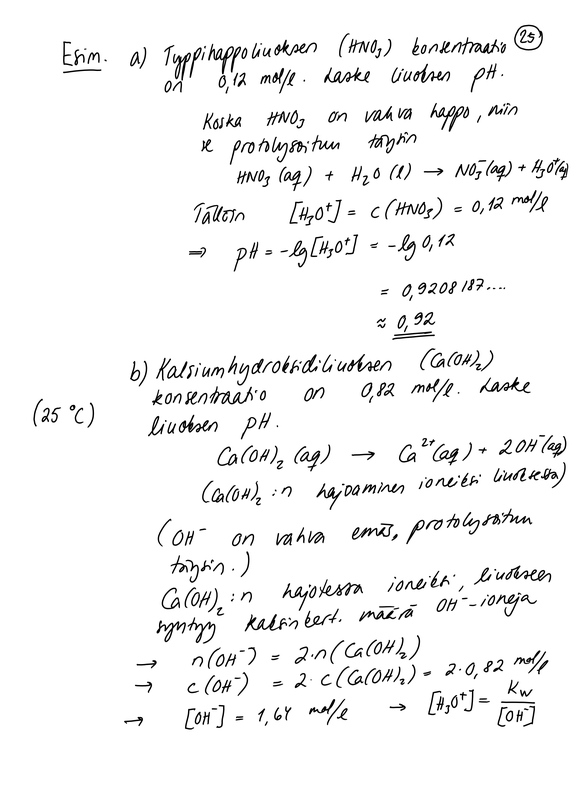 25
Esim. a) Typpihappoliuoksen (HNO₃) konsentraatio
on 0,12 mol/l. Laske liuoksen pH.
Koska HNO₃ on vahva happo, niin
se protolysoituu täysin
HNO₃ (aq) + H₂O (l) → NO₃⁻(aq) + H₃O⁺(aq)
Tällöin [H₃O⁺] = c(HNO₃) = 0,12 mol/l
⇒ pH = -lg[H₃O⁺] = -lg 0,12
= 0,9208187....
≈ 0,92
b) Kalsiumhydroksidiliuoksen (Ca(OH)₂)
konsentraatio on 0,82 mol/l. Laske
(25 °C) liuoksen pH.
Ca(OH)₂ (aq) → Ca²⁺(aq) + 2OH⁻(aq)
(Ca(OH)₂ :n hajoaminen ioneiksi liuoksessa)
(OH⁻ on vahva emäs, protolysoituu
täysin.)
Ca(OH)₂ :n hajotessa ioneiksi, liuokseen
syntyy kaksinkert. määrä OH⁻-ioneja
→ n(OH⁻) = 2·n(Ca(OH)₂)
→ c(OH⁻) = 2·c(Ca(OH)₂) = 2·0,82 mol/l
→ [OH⁻] = 1,64 mol/l → [H₃O⁺] = Kw/[OH⁻]